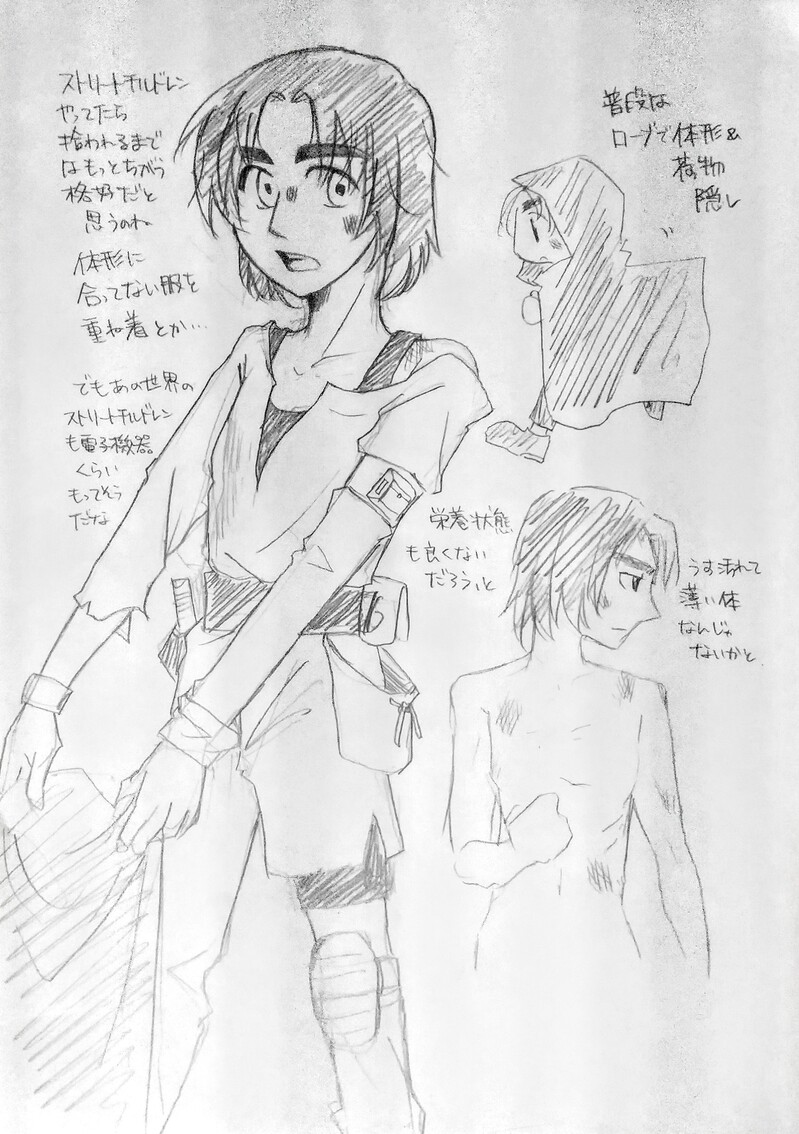 ストリートチルドレン
やってたら
拾われるまで
はもっとちがう
格好だと
思うのね
体形に
合ってない服を
重ね着とか…
でもあの世界の
ストリートチルドレン
も電子機器
くらい
もってそう
だな
普段は
ローブで体形&
荷物
隠し
栄養状態
も良くない
だろうと
うす汚れて
薄い体
なんじゃ
ないかと